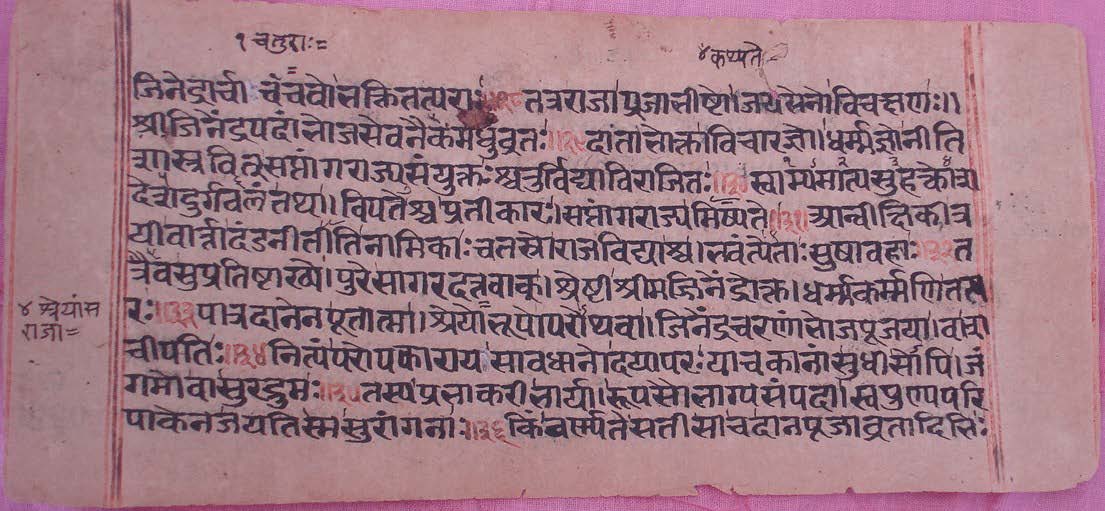 १ चतुराः=
४ कथ्यते
जिनेंद्रार्चा चंचवो भक्तितत्पराः ॥२८ तत्र राजा प्रजाभीष्टो । जयसेनो विचक्षणः ॥
श्रीजिनेंद्रपदांभोजसेवनैकमधुव्रतः ॥२९ दाता भोक्ता विचारज्ञो । धर्म्मज्ञो नीति
शास्त्रवित् सप्तांगराज्यसंयुक्तः श्चतुर्विद्याविराजितः ॥३० स्वाम्यमात्यसुहृत्कोश
देशदुर्गबलं तथा । विपतेश्च प्रतीकारः । सप्तांगराज्यमिष्यते ॥३१ आन्वीक्षिकी त्र
यी वार्त्ता दंडनीतीति नामिकाः चतस्रो राजविद्याश्च । भवंत्येताः सुषावहाः ॥३२ त
त्रैव सुप्रतिष्टाख्ये । पुरे सागरदत्तवाक् । श्रेष्टी श्रीमज्जिनेंद्रोक्त । धर्म्मकर्म्मणि तत्प
रः ॥३३ पात्रदानेन पूतात्मा । श्रेयांभूपोपरोथवा । जिनेंद्रचरणांभोजपूजया । वा श
चीपतिः ॥३४ नित्यं परोपकाराय सावधानो दयापरः याचकानां सुधीः सोपि । जं
गमो वा सुरद्रुमः ॥३५ तस्य प्रभाकरी भार्या । रूपसौभाग्यसंपदा । स्वपुण्यपरि
पाकेन जयति स्म सुरांगनाः ॥३६ किं वर्ण्यते सती सा च दानपूजाव्रतादिभिः
४ श्रेयांस
राजा=